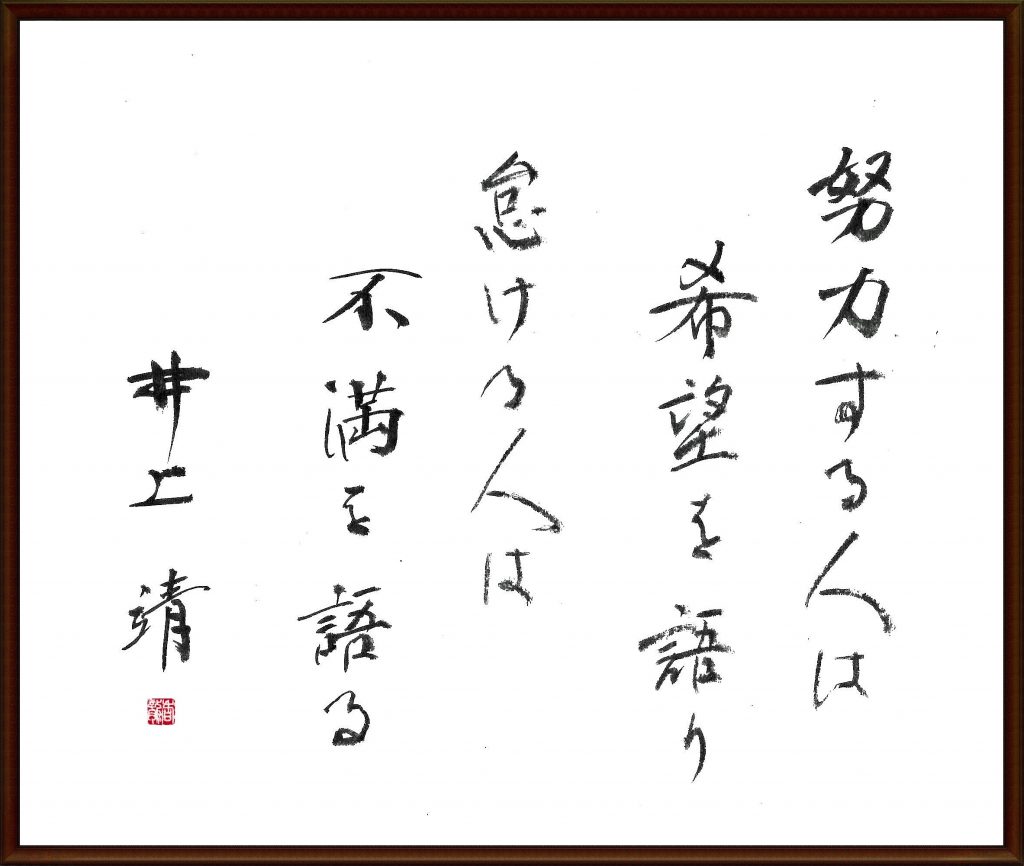 努力する人は
希望を語り
怠ける人は
不満を語る
井上 靖